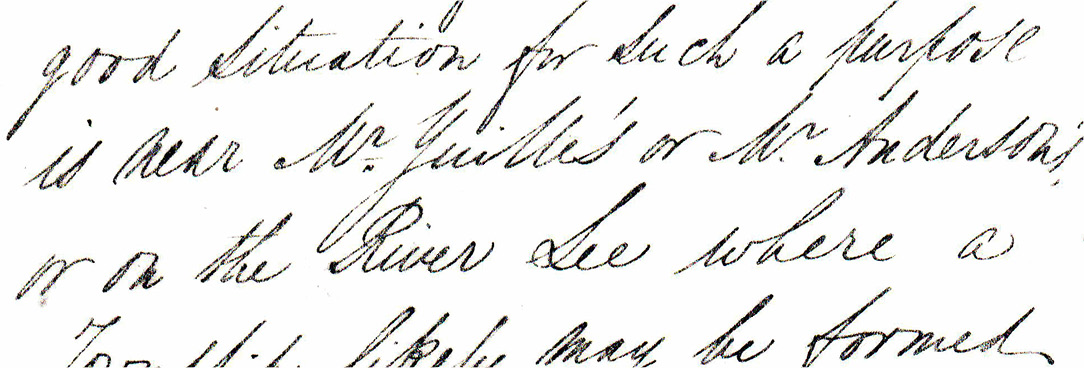 good situation for such a purpose
is near Mr. Guille's or Mr. Anderson's,
or on the River Lee where a
likely may be formed